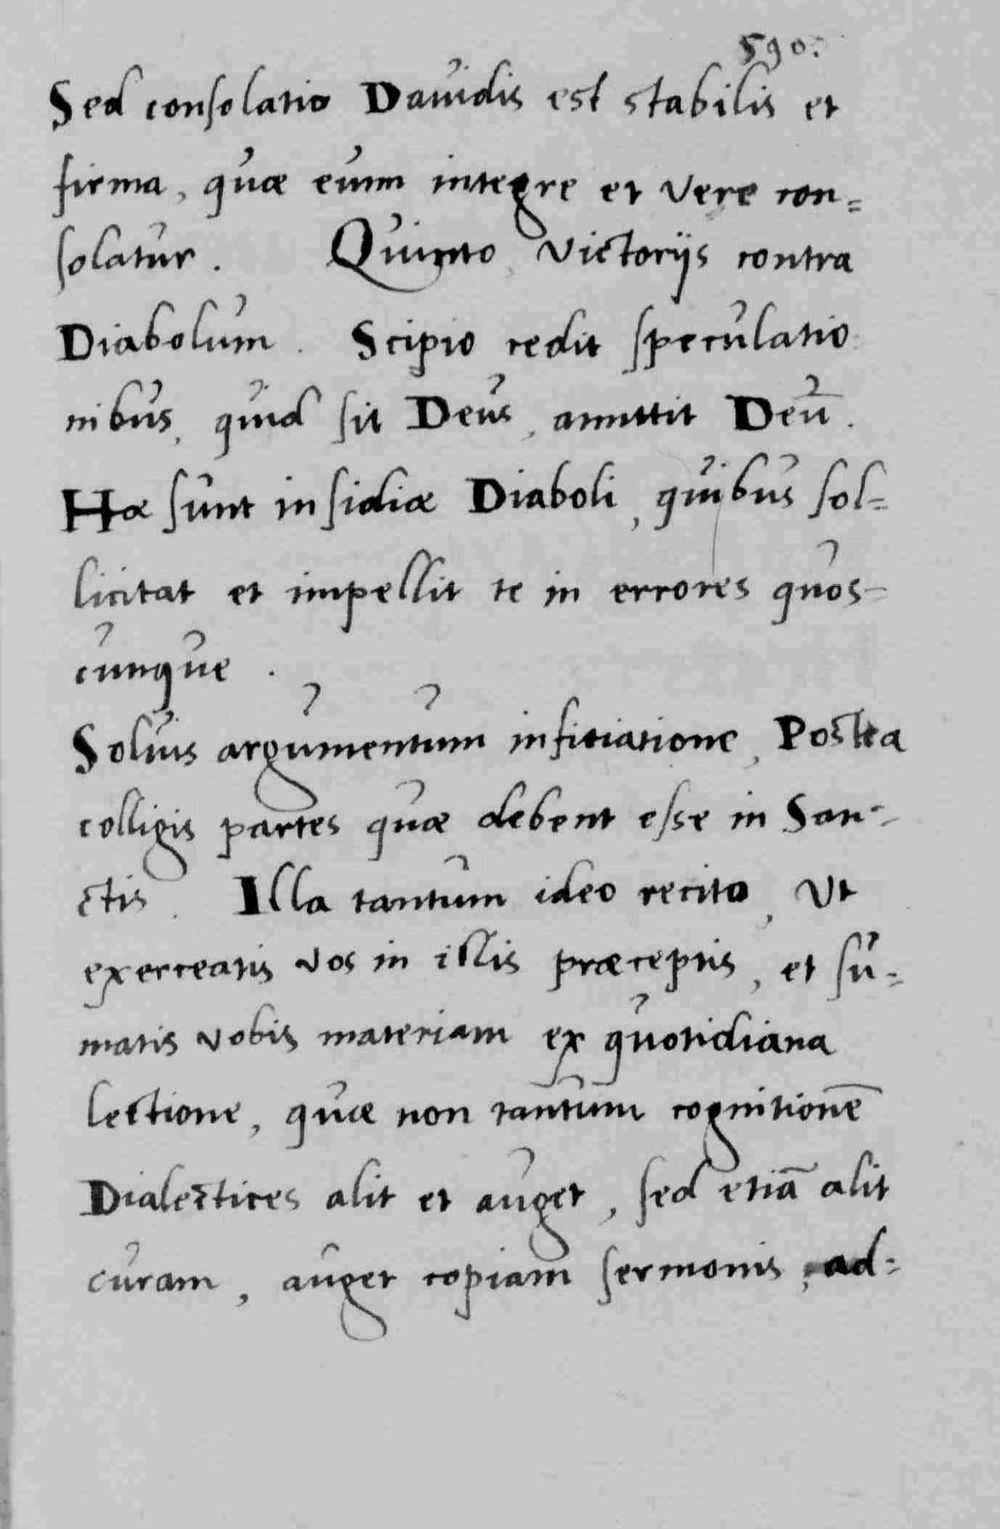 590.
Sed consolatio Dauidis est stabilis et
firma, quæ eum integre et vere con=
solatur. Quinto, victorijs contra
Diabolum. Scipio cedit speculatio
nibus, quid sit Deus, amittit Deū.
Hæ sunt insidiæ Diaboli, quibus sol=
licitat et impellit te in errores quos-
cunque.
Soluis argumentum inficiatione, Postea
colligis partes quæ debent esse in San=
ctis. Illa tantum ideo recito, Vt
exerceatis vos in illis præceptis, et su=
matis vobis materiam ex quotidiana
lectione, quæ non tantum cognitionē
Dialectices alit et auget, sed etiā alit
curam, auget copiam sermonis, ad=